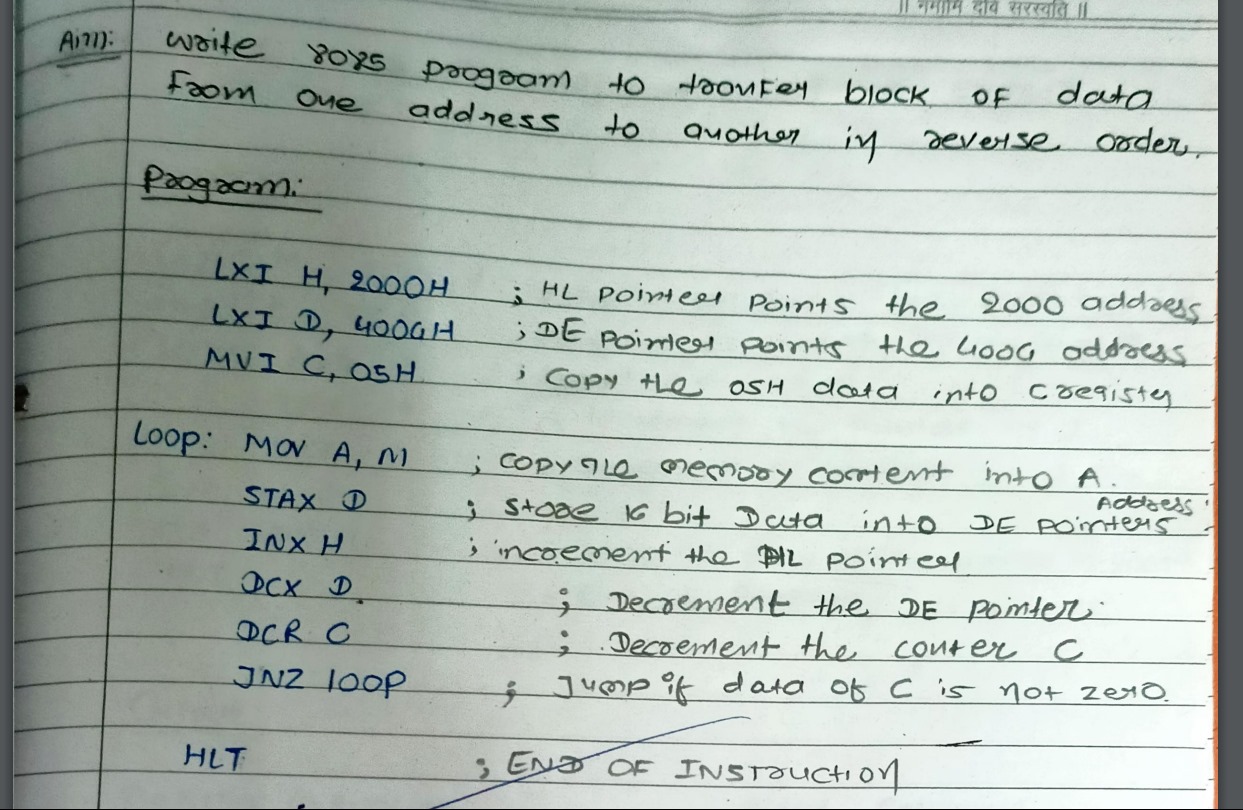 ॥ नमामि देवि सरस्वति ॥
Aim: Write 8085 program to tranfer block of data
From one address to another in reverse order.
Program:
LXI H, 2000H ; HL pointer points the 2000 address
LXI D, 400GH ; DE pointer points the 400G address
MVI C, 05H ; Copy the 05H data into C register
Loop: MOV A, M ; copy the memory content into A.
STAX D ; Store 16 bit Data into DE pointers Address
INX H ; increment the HL pointer
DCX D. ; Decrement the DE pointer.
DCR C ; Decrement the conter C
JNZ lOOP ; Jump if data of C is not zero.
HLT ; END OF INSTruCTION